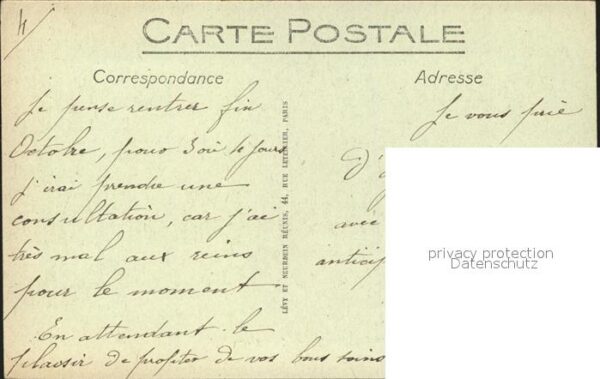 4
CARTE POSTALE
Correspondance
Adresse
Je pense rentrer fin
Octobre, pour 3 où 4 jours
j'irai prendre une
consultation, car j'ai
très mal aux reins
pour le moment
En attendant le
plaisir de profiter de vos bons soins
LÉVY ET NEURDEIN RÉUNIS, 44, RUE LETELLIER, PARIS
Je vous prie
d'
avec
anticip
privacy protection
Datenschutz